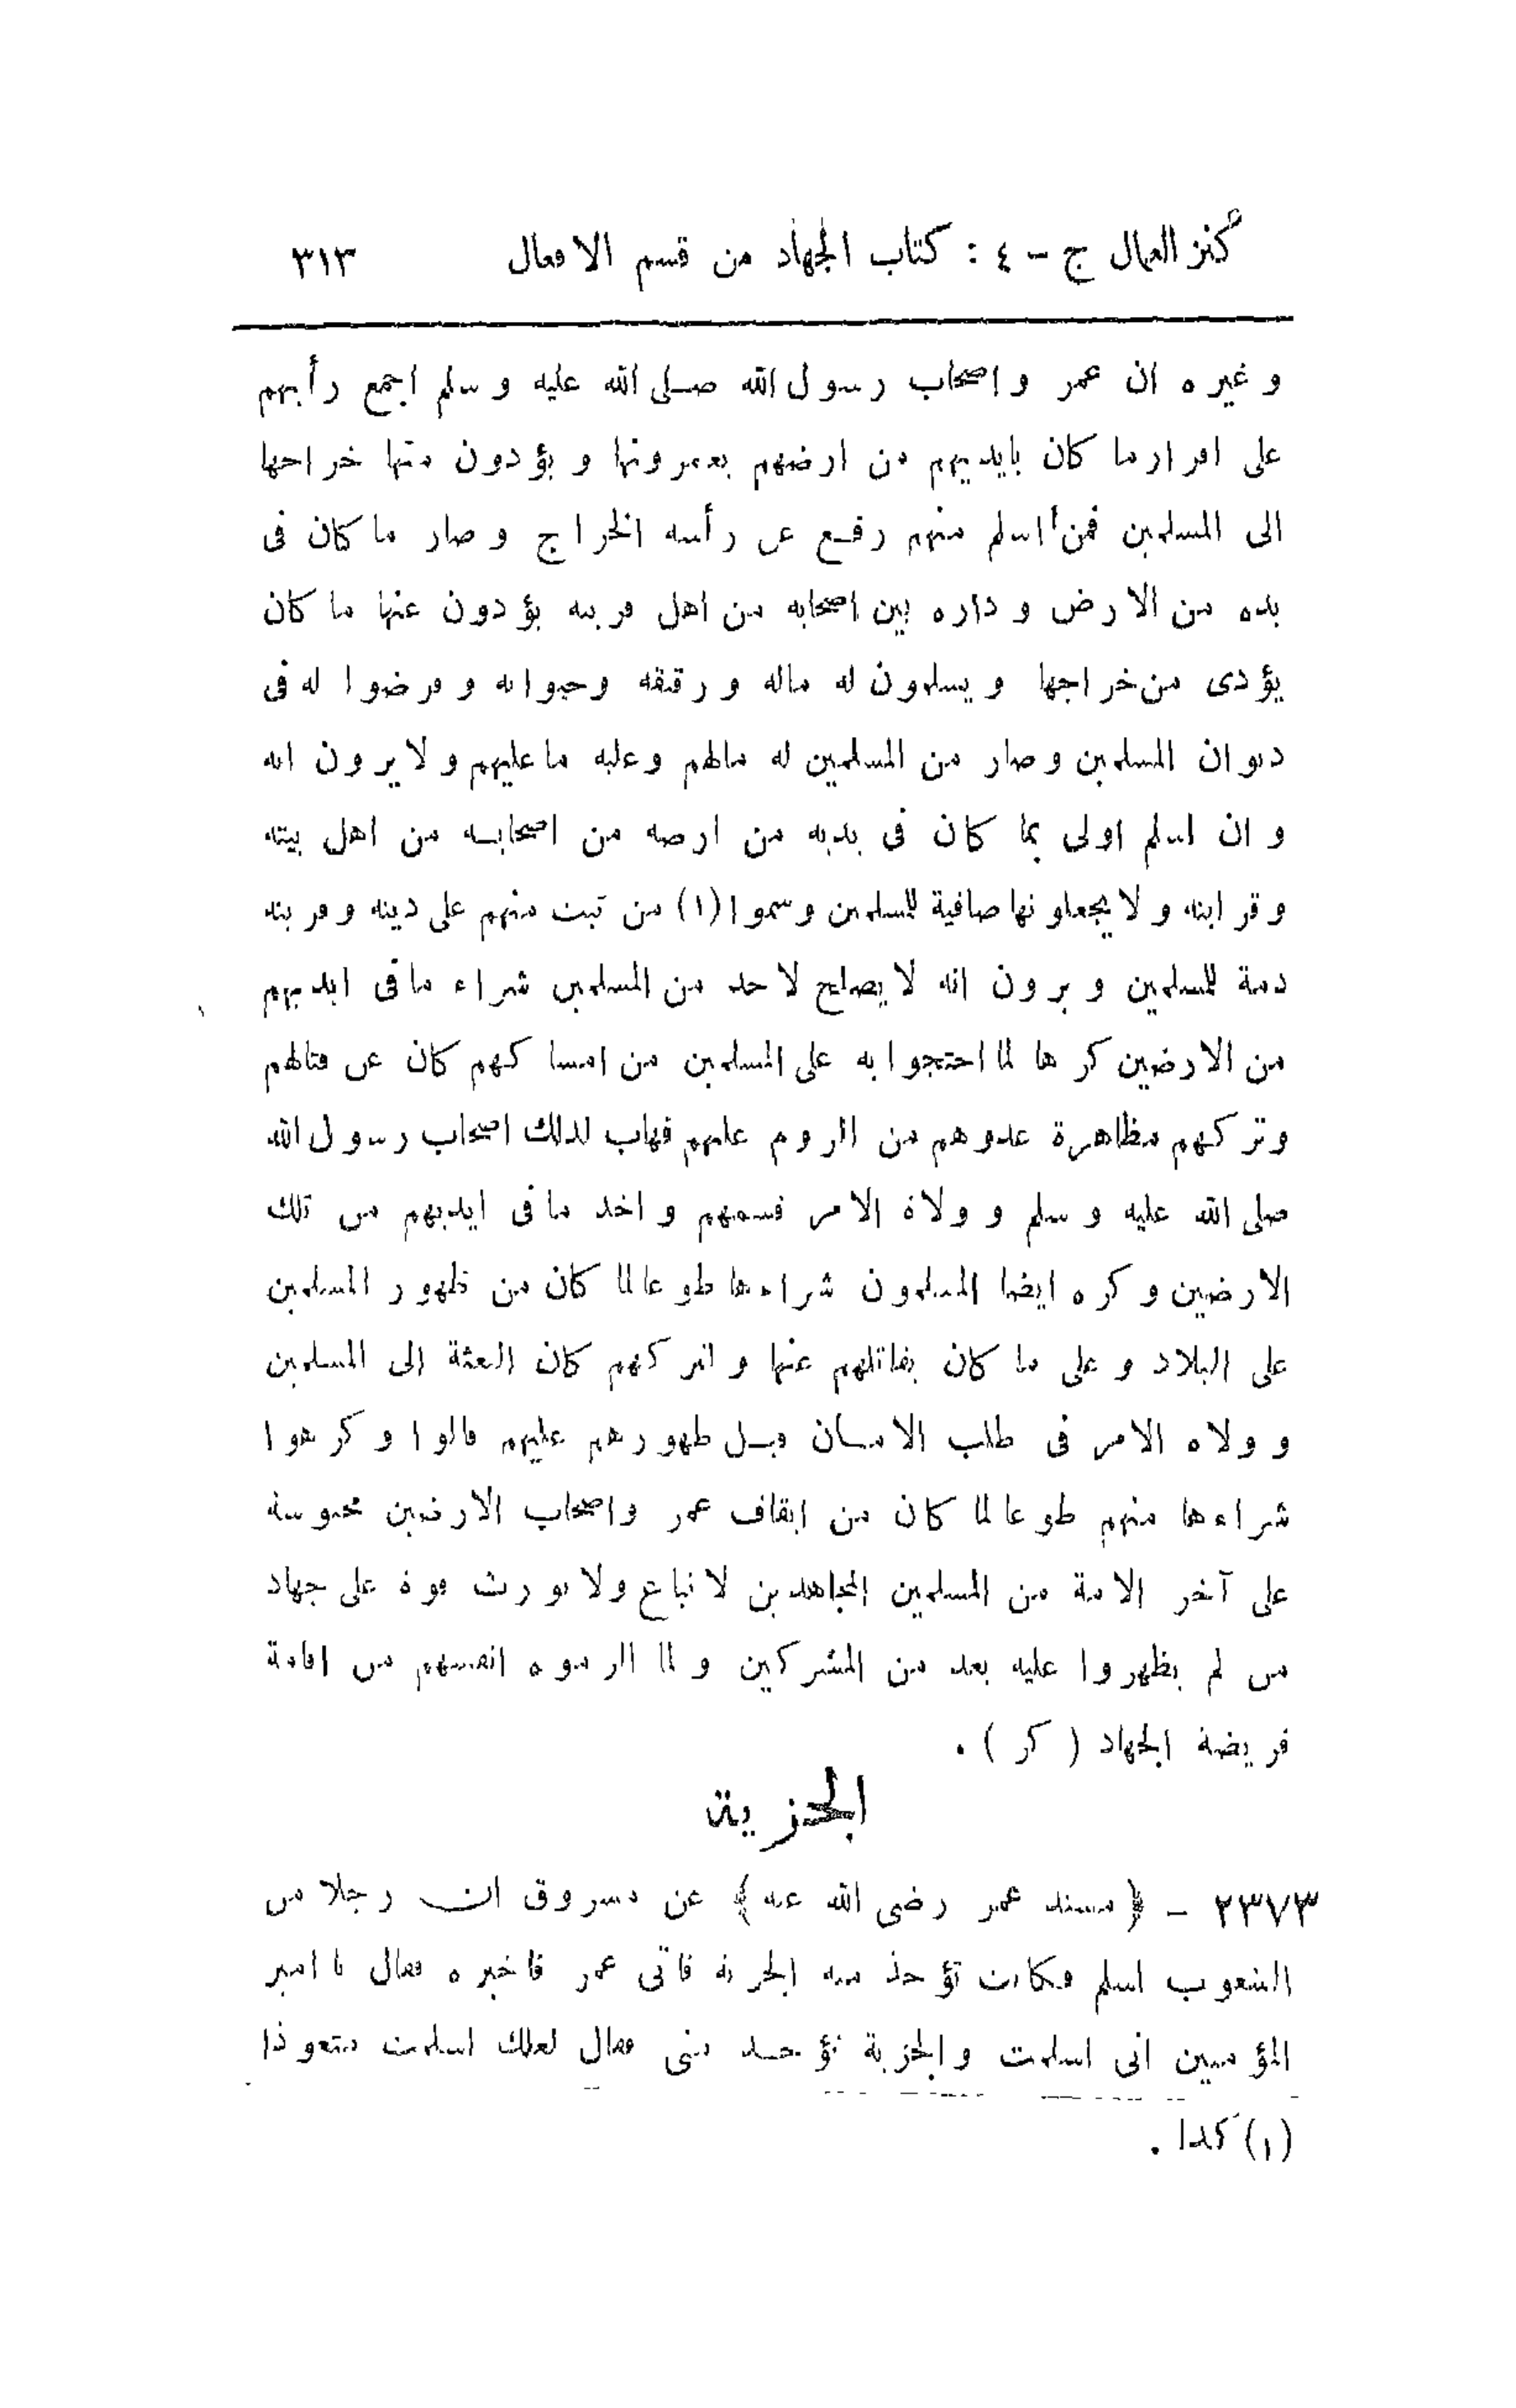 كنز العمال ج - ٤ : كتاب الجهاد من قسم الافعال ٣١٣
و غيره ان عمر و اصحاب رسول الله صلى الله عليه و سلم اجمع رأيهم
على اقرار ما كان بايديهم من ارضهم يعمرونها و يؤدون منها خراجها
الى المسلمين فمن اسلم منهم رفع عن رأسه الخراج و صار ما كان فى
يده من الارض و داره بين اصحابه من اهل قريته يؤدون عنها ما كان
يؤدى من خراجها و يسلمون له ماله و رقيقه و حيوانه و فرضوا له فى
ديوان المسلمين و صار من المسلمين له مالهم و عليه ما عليهم و لا يرون انه
و ان اسلم اولى بما كان فى يديه من ارضه من اصحابه من اهل بيته
و قرابته و لا يجعلونها صافية للمسلمين و سموا (١) من ثبت منهم على دينه و قريته
ذمة للمسلمين و يرون انه لا يصلح لاحد من المسلمين شراء ما فى ايديهم
من الارضين كرها لما احتجوا به على المسلمين من امساكهم كان عن قتالهم
و تركهم مظاهرة عدوهم من الروم عليهم فهاب لذلك اصحاب رسول الله
صلى الله عليه و سلم و ولاة الامر قسمهم و اخذ ما فى ايديهم من تلك
الارضين و كره ايضا المسلمون شراءها طوعا لما كان من ظهور المسلمين
على البلاد و على ما كان يقاتلهم عنها و لتركهم كان البعثة الى المسلمين
و ولاة الامر فى طلب الامان قبل ظهورهم عليهم قالوا و كرهوا
شراءها منهم طوعا لما كان من ايقاف عمر و اصحاب الارضين محبوسة
على آخر الامة من المسلمين المجاهدين لا تباع و لا تورث قوة على جهاد
من لم يظهروا عليه بعد من المشركين و لما الزموه انفسهم من اقامة
فريضة الجهاد ( كر ) .
الجزية
٢٣٧٣ - ﴿ مسند عمر رضى الله عنه ﴾ عن مسروق ان رجلا من
الشعوب اسلم فكانت تؤخذ منه الجزية فاتى عمر فاخبره فقال يا امير
المؤمنين انى اسلمت و الجزية تؤخذ منى فقال لعلك اسلمت متعوذا
(١) كذا .